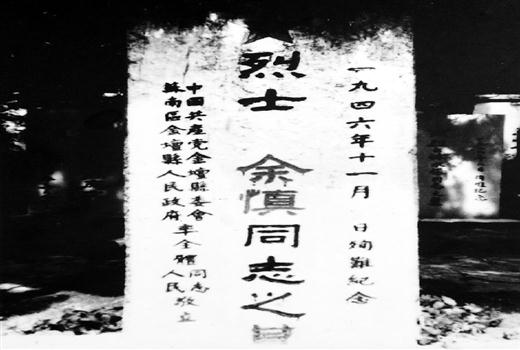 一九四六年十一月 日殉難紀念
烈士 余慎同志之
中國共產党金壇縣委會
蘇南區金壇縣人民政府率全體同志人民敬立